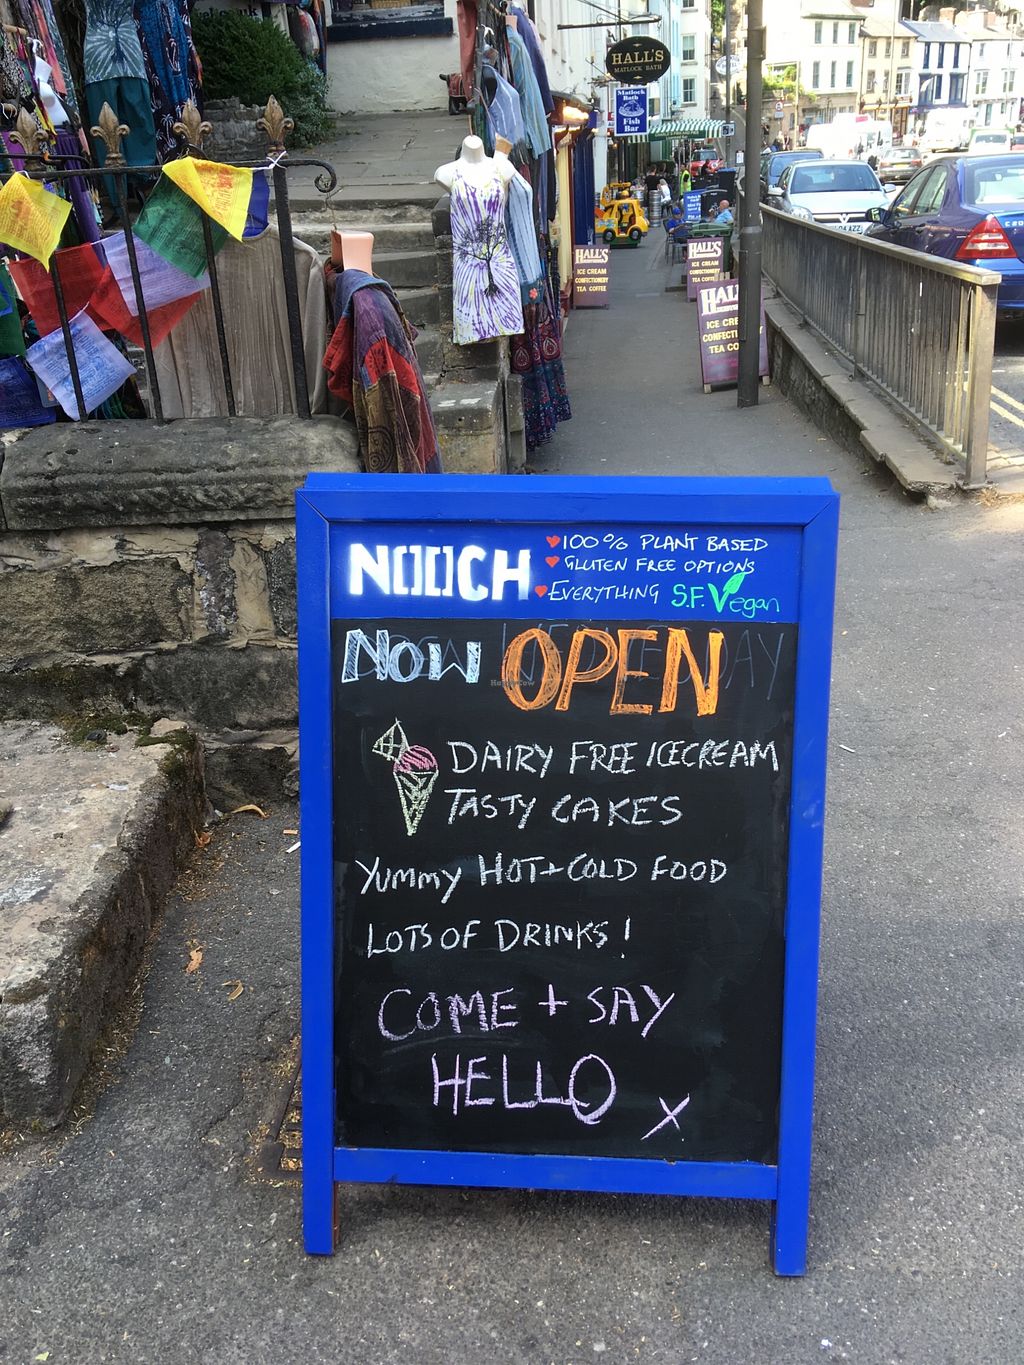 HALL'S
MATLOCK BATH
Matlock
Bath
Fish
Bar
HALL'S
ICE CREAM
CONFECTIONERY
TEA COFFEE
HALL'S
ICE CREAM
CONFECTIONERY
TEA COFFEE
HALL
ICE CRE
CONFECTI
TEA CO
NOOCH
100% PLANT BASED
GLUTEN FREE OPTIONS
EVERYTHING S.F. Vegan
NOW OPEN
DAIRY FREE ICECREAM
TASTY CAKES
YUMMY HOT + COLD FOOD
LOTS OF DRINKS!
COME + SAY
HELLO
X